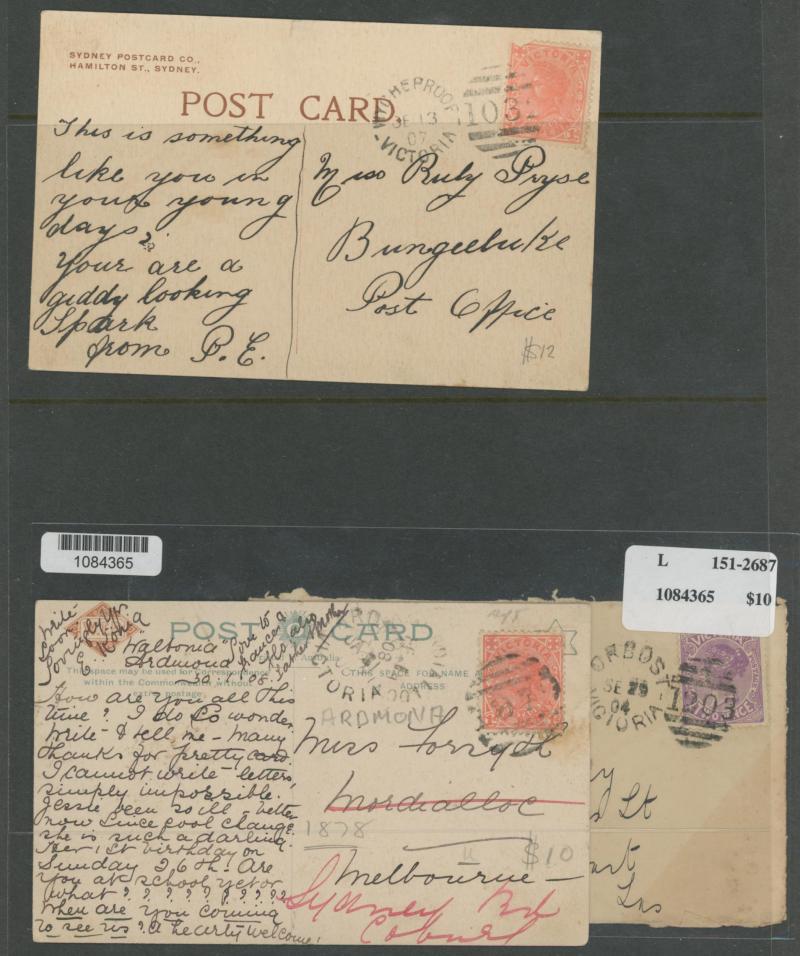 SYDNEY POSTCARD CO.,
HAMILTON ST., SYDNEY.
POST CARD
VICTORIA
SE 13
07
VICTORIA
1032
This is something
like you in
your young
days?
Your are a
giddy looking
Spark
from P.E.
Miss Ruby Pryse
Bungeeluke
Post Office
$12
1084365
L 151-2687
1084365 $10
POST CARD
Write
Soon
Lovingly Yr.
E.
Waltonia
Ardmona
Love to
This space may be used for correspondence
within the Commonwealth without
extra postage.
THIS SPACE FOR NAME AND
VICTORIA
ARDMONA
How are you all this
time? I do so wonder
Write & tell me - Many
thanks for pretty card.
I cannot write letters,
simply impossible.
Jessie been so ill - better
now since cool change
she is such a darling.
Her 1st birthday on
Sunday 26th. Are
you at school yet or
what ? ? ? ? ? ? ? ? ?
When are you coming
to see us? A hearty welcome!
Miss Forsyth
Mordialloc
1878
$10
Melbourne
Sydney Rd
Coburg
ORBOST
SE 29
04
VICTORIA
1203
VICTORIA
POSTAGE
St